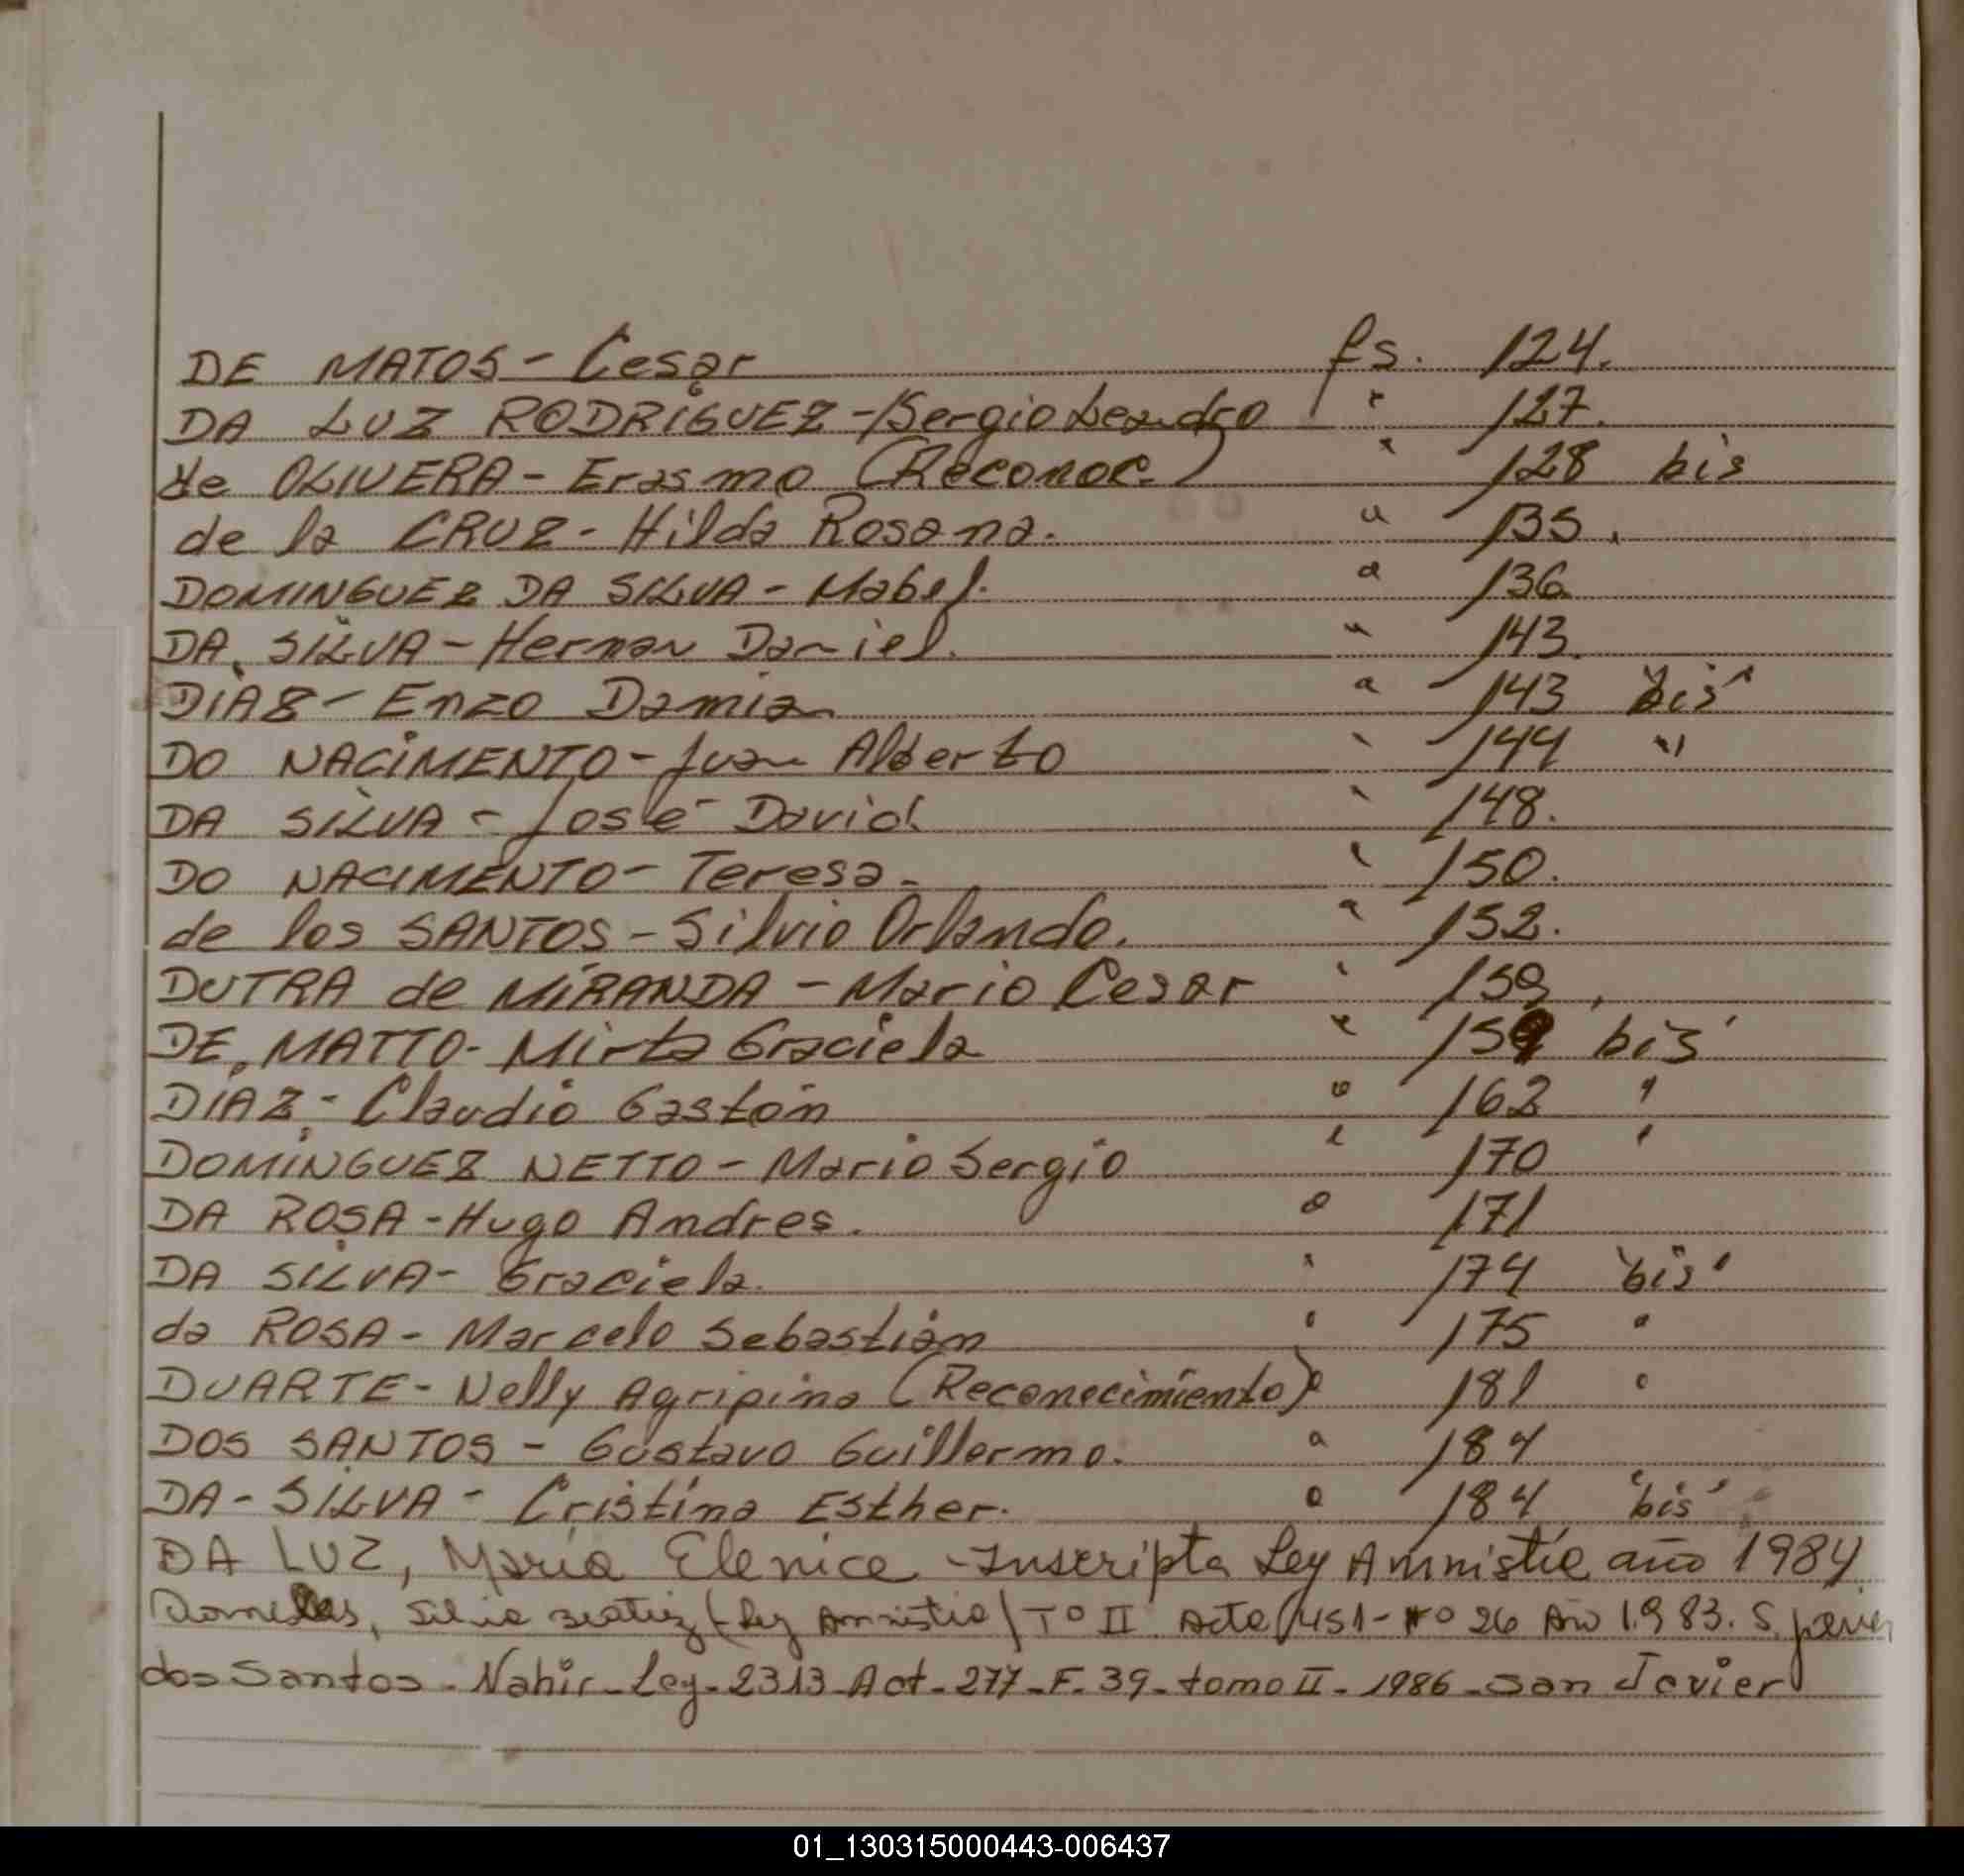 DE MATOS - Cesar fs. 124.
DA LUZ RODRIGUEZ - Sergio Leandro " 127.
de OLIVERA - Erasmo (Reconoc.) " 128 bis
de la CRUZ - Hilda Rosana. " 135.
DOMINGUEZ DA SILVA - Mabel. " 136
DA SILVA - Hernan Daniel. " 143.
DIAZ - Enzo Damian " 143 "bis"
DO NACIMENTO - Juan Alberto " 144 "
DA SILVA - José David " 148.
DO NACIMENTO - Teresa - " 150.
de los SANTOS - Silvio Orlando. " 152.
DUTRA de MIRANDA - Mario Cesar " 159.
DE MATTO - Mirta Graciela " 159 bis
DIAZ - Claudio Gastón " 162 "
DOMINGUEZ NETTO - Mario Sergio " 170 "
DA ROSA - Hugo Andres. " 171
DA SILVA - Graciela. " 174 "bis"
da ROSA - Marcelo Sebastián " 175 "
DUARTE - Nelly Agripina (Reconocimiento) " 181 "
DOS SANTOS - Gustavo Guillermo. " 184
DA - SILVA - Cristina Esther. " 184 "bis"
DA LUZ, María Elenice - Inscripta Ley Amnistía año 1984.
Silvia Beatriz (Ley Amnistia) Tº II Acta 451 - Fº 26 Año 1.983. S. Javier
dos Santos - Nahir - Ley - 2313 - Act - 277 - F. 39 - tomo II - 1986 - San Javier
01_130315000443-006437